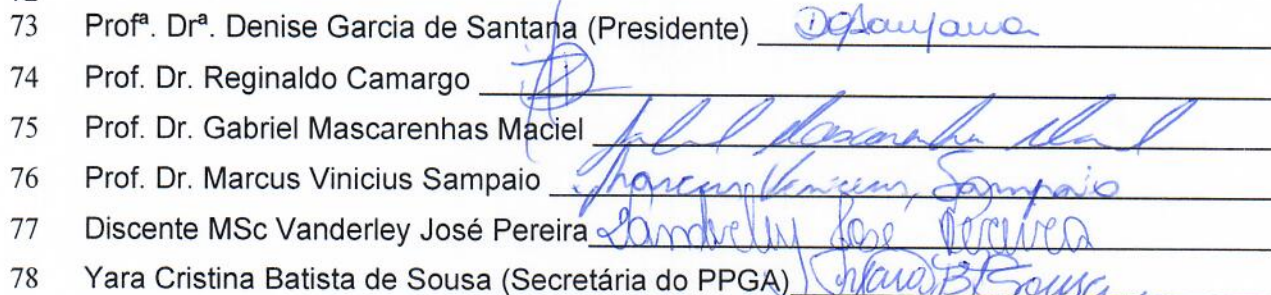 73 Profª. Drª. Denise Garcia de Santana (Presidente) DGSantana
74 Prof. Dr. Reginaldo Camargo
75 Prof. Dr. Gabriel Mascarenhas Maciel Gabriel Mascarenhas Maciel
76 Prof. Dr. Marcus Vinicius Sampaio Marcus Vinicius Sampaio
77 Discente MSc Vanderley José Pereira Vanderley José Pereira
78 Yara Cristina Batista de Sousa (Secretária do PPGA) Yara B Sousa